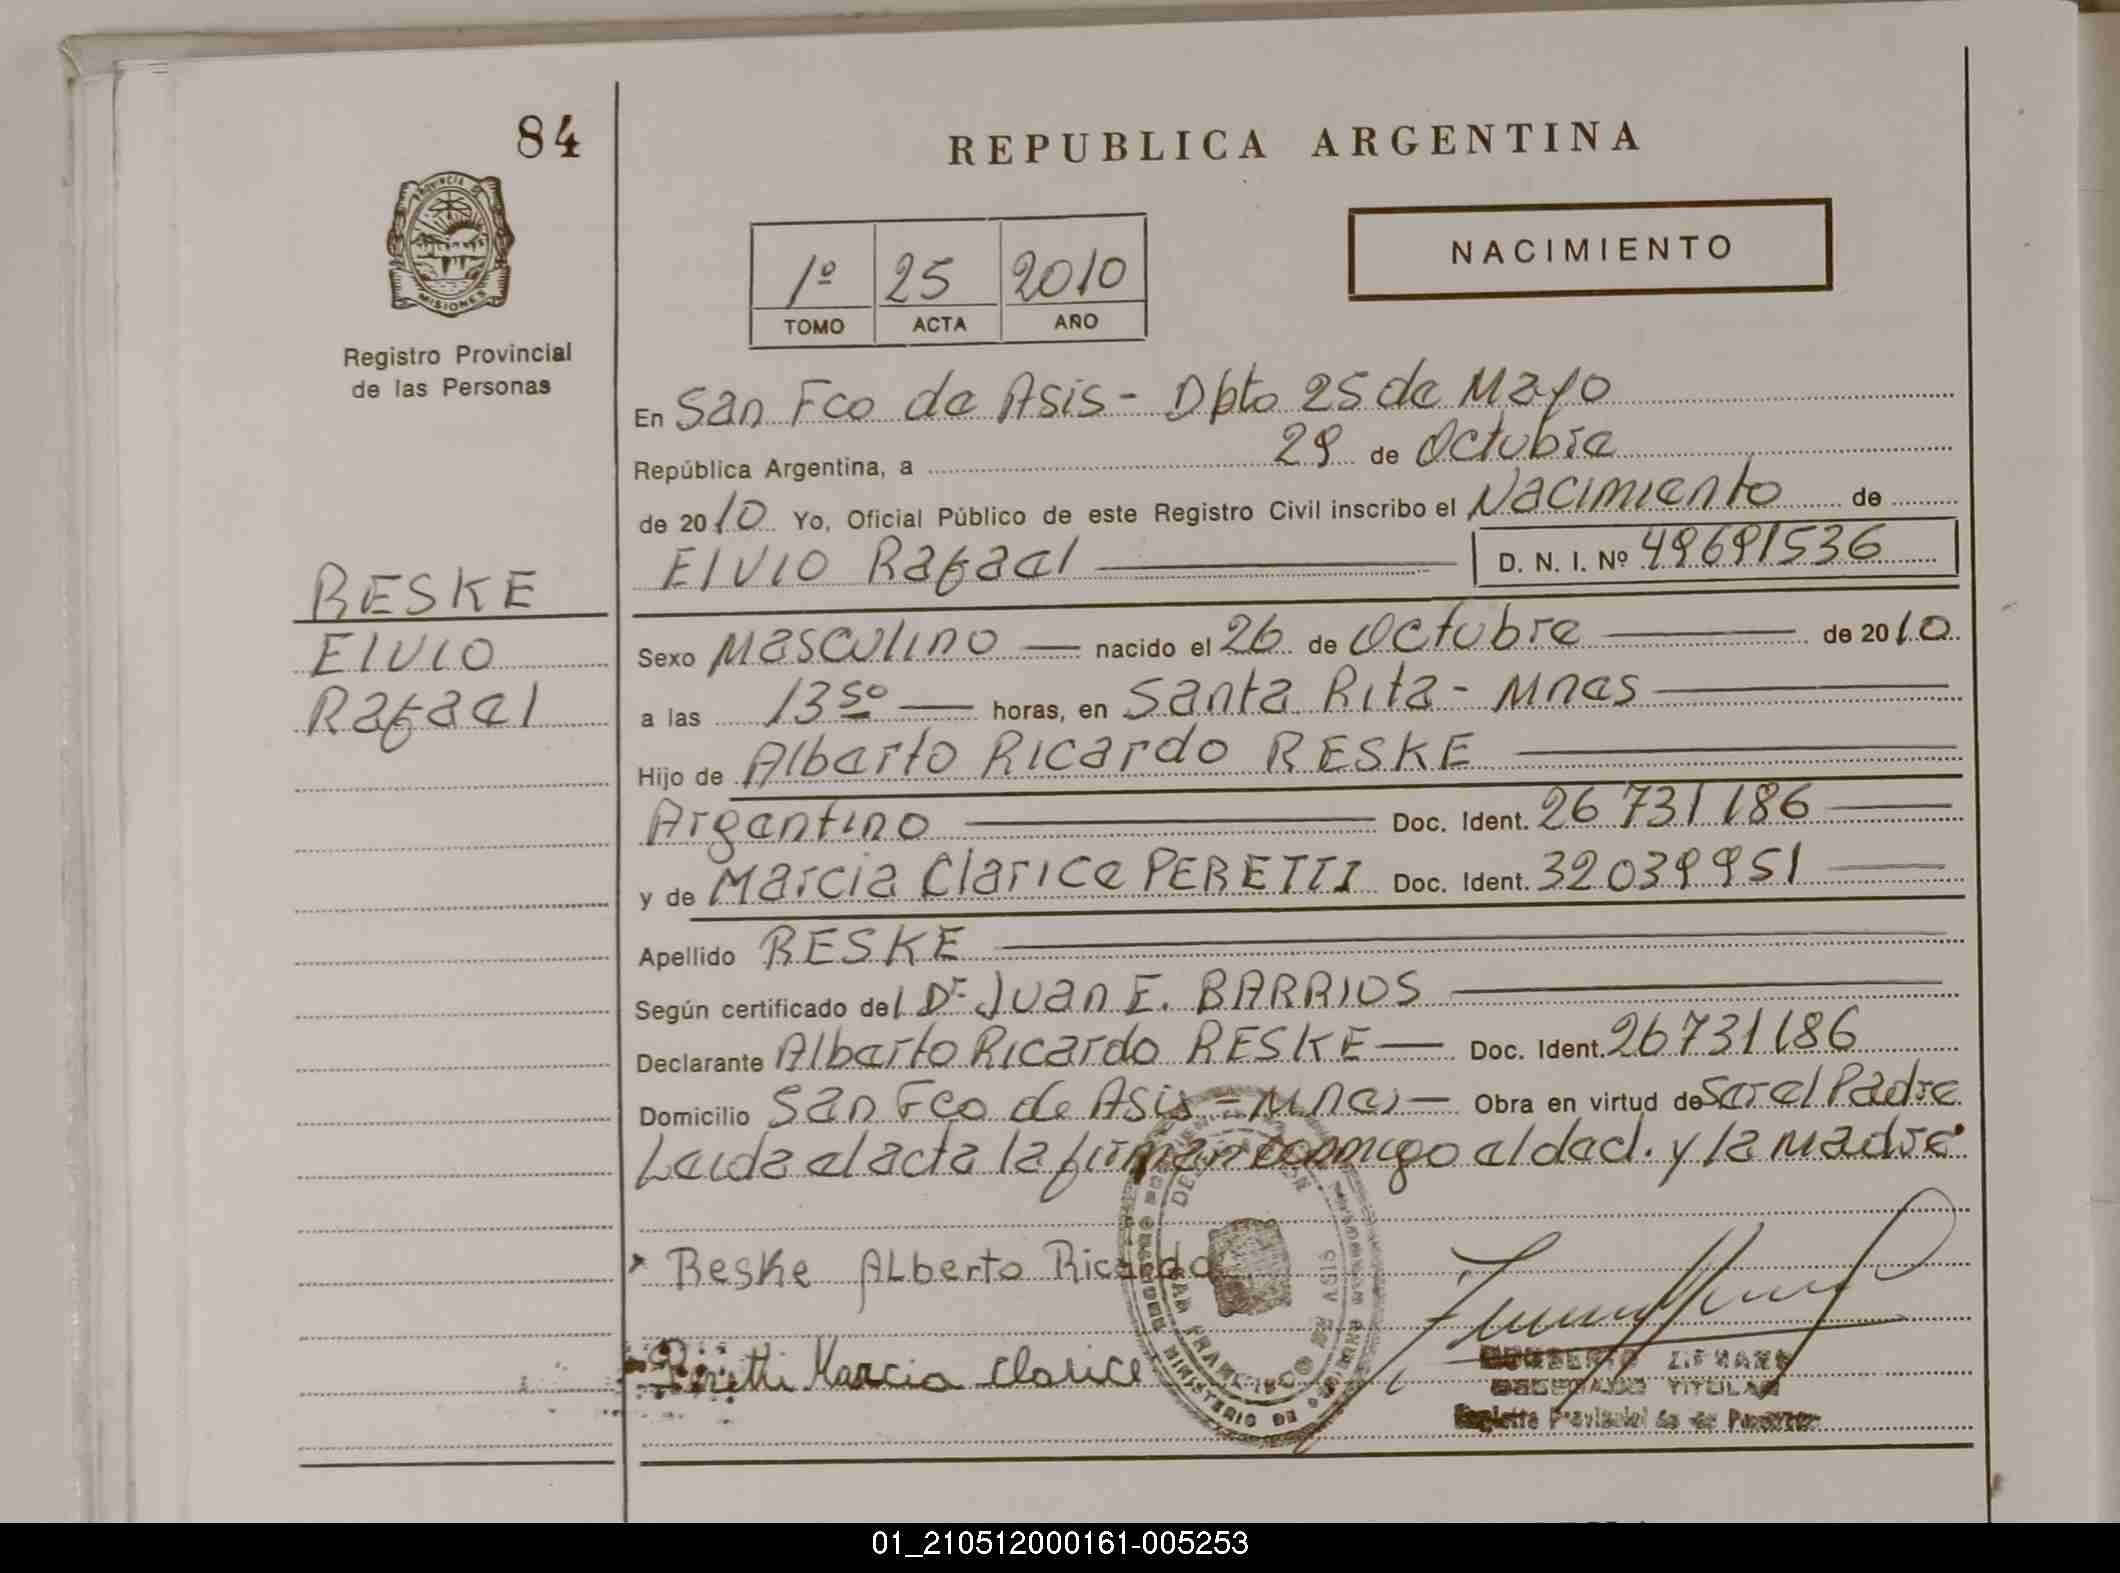 84
REPUBLICA ARGENTINA
PROVINCIA DE
MISIONES
Registro Provincial
de las Personas
NACIMIENTO
1º 25 2010
TOMO ACTA AÑO
En San Fco de Asis - Dpto 25 de Mayo
República Argentina, a 29 de Octubre
de 2010 Yo, Oficial Público de este Registro Civil inscribo el Nacimiento de
Elvio Rafael D. N. I. Nº 49691536
RESKE
Elvio
Rafael
Sexo Masculino nacido el 26 de Octubre de 2010
a las 13 50 horas, en Santa Rita - Mnes
Hijo de Alberto Ricardo RESKE
Argentino Doc. Ident. 26 731 186
y de Marcia Clarice PERETTI Doc. Ident. 32039951
Apellido RESKE
Según certificado del Dr Juan E. BARRIOS
Declarante Alberto Ricardo RESKE Doc. Ident. 26731186
Domicilio San Fco de Asis - Mnes - Obra en virtud de Ser el Padre
Leida el acta la firman conmigo el decl. y la madre
Reske Alberto Ricardo
Peretti Marcia Clarice
SAN FRANCISCO DE ASIS
MINISTERIO DE GOBIERNO
TITULAR
Registro Provincial de las Personas
01_210512000161-005253